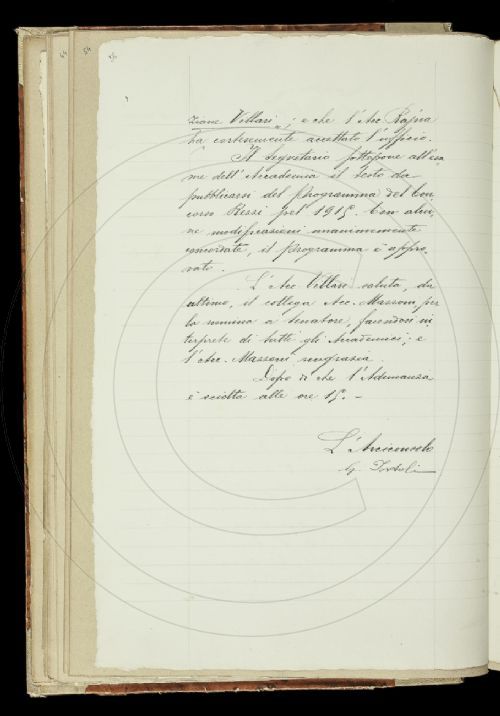 zione Villari„; e che l'Acc. Rajna
ha cortesemente accettato l'ufficio.
Il Segretario sottopone all'esa-
me dell'Accademia il testo da
pubblicarsi del programma del Con-
corso Rezzi pel 1915. Con alcu-
ne modificazioni unanimemente
concordate, il programma è appro-
vato.
L'Acc. Villari saluta, da
ultimo, il collega Acc. Mazzoni, per
la nomina a senatore, facendosi in-
terprete di tutti gli Accademici; e
l'Acc. Mazzoni ringrazia.
Dopo di che l'Adunanza
è sciolta alle ore 15. –
L'Arciconsolo
G. Tortoli